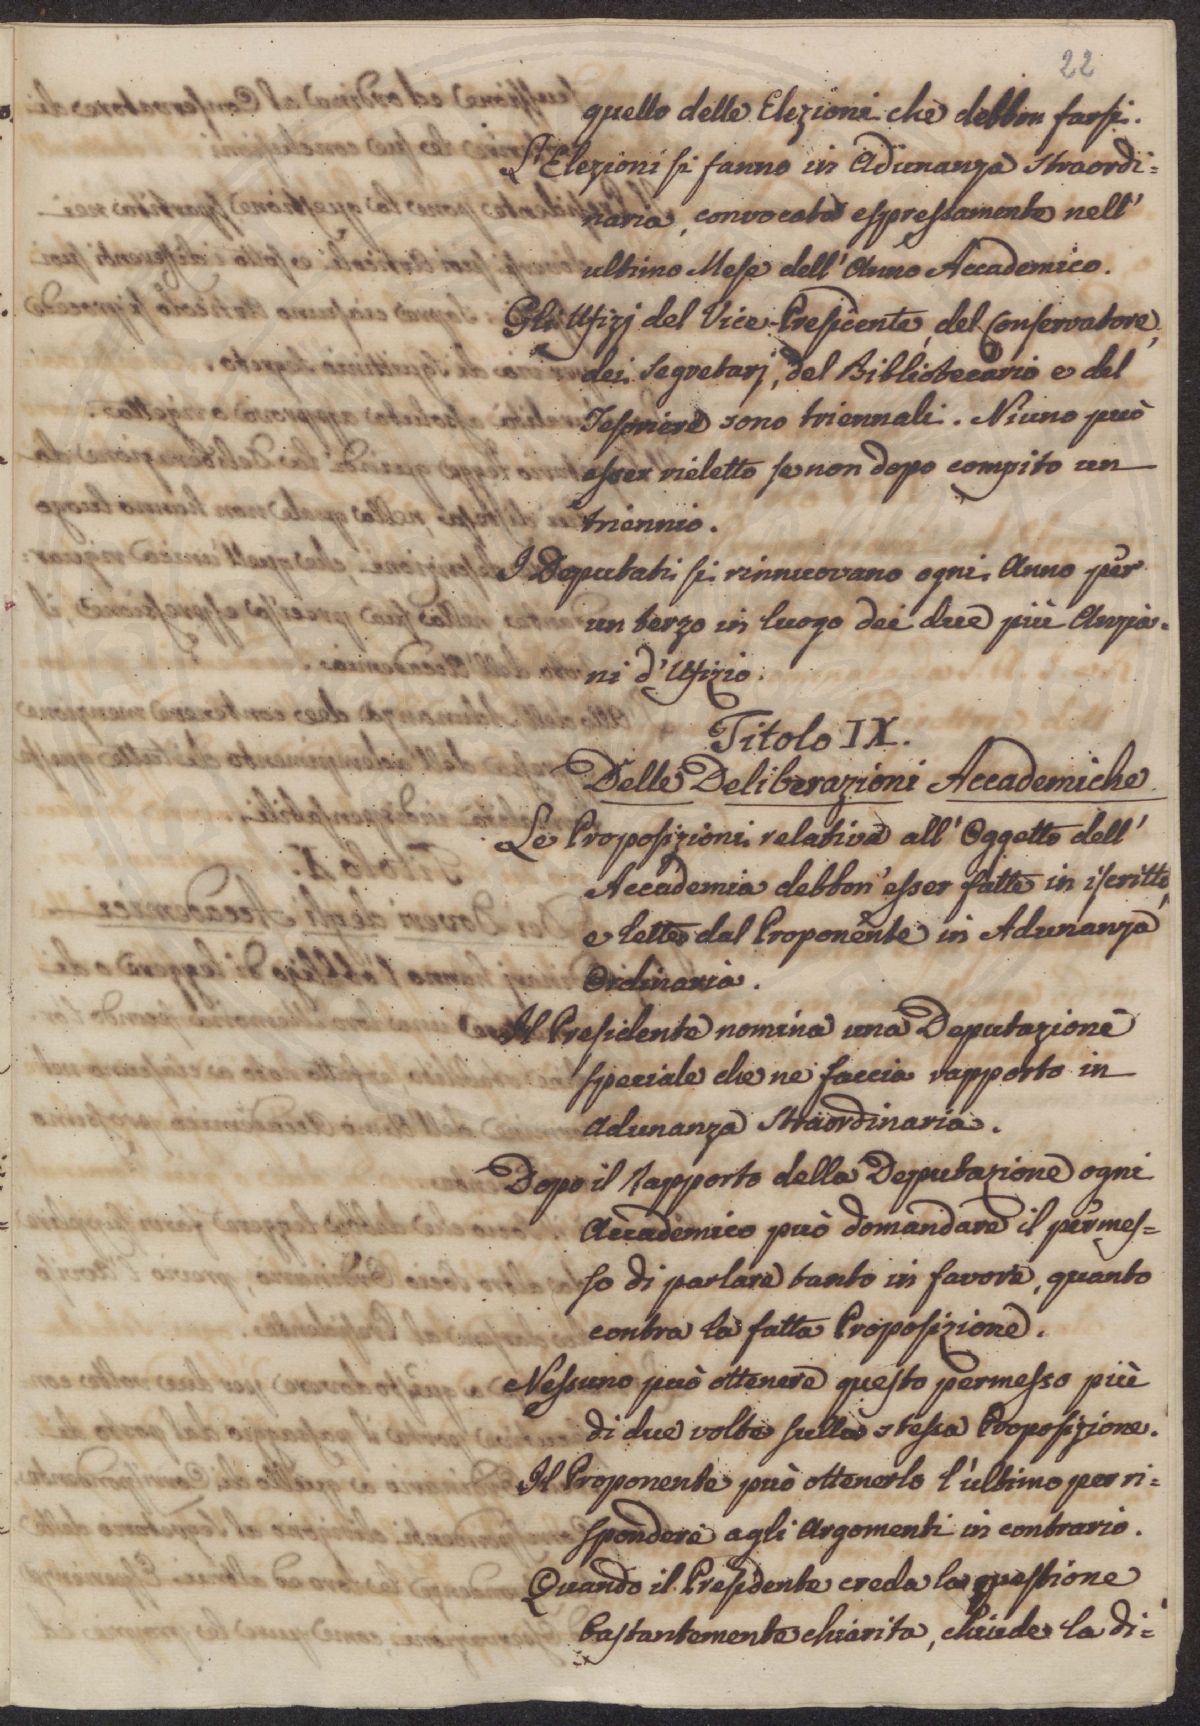 22
quello delle Elezioni che debbon farsi.
L'Elezioni si fanno in Adunanza straordi=
naria, convocata espressamente nell'
ultimo Mese dell'Anno Accademico.
Gli Ufizj del Vice-Presidente, del Conservatore,
dei Segretarj, del Bibliotecario e del
Tesoriere sono triennali. Niuno può
esser rieletto se non dopo compito un
triennio.
I Deputati si rinnuovano ogni Anno per
un terzo in luogo dei due più Anzia=
ni d'Ufizio.
Titolo IX.
Delle Deliberazioni Accademiche
Le Proposizioni relative all'Oggetto dell'
Accademia debbon'esser fatte in iscritto,
e lette dal Proponente in Adunanza
Ordinaria.
Il Presidente nomina una Deputazione
speciale che ne faccia rapporto in
Adunanza Straordinaria.
Dopo il Rapporto della Deputazione ogni
Accademico può domandare il permes=
so di parlare tanto in favore, quanto
contra la fatta Proposizione.
Nessuno può ottenere questo permesso più
di due volte sulla stessa Proposizione.
Il Proponente può ottenerlo l'ultimo per ri=
spondere agli Argomenti in contrario.
Quando il Presidente creda la questione
bastantemente chiarita, chiude la di=